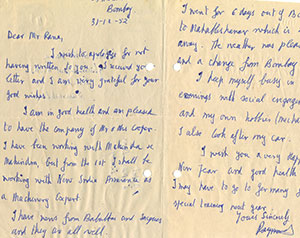 Bombay
31-12-52
Dear Mr Rana,
I wish to apologise for not
having written to you. I received your
letter and I am very grateful for your
good wishes.
I am in good health and am pleased
to have the company of Mr & Mrs Cooper.
I have been working with Mahindra &
Mahindra, but from the 1st I shall be
working with New India Assurance as
a Machinery Expert.
I have news from and
and they are all well.
I went for 6 days out of
to Mahableshwar which is
away. The weather was pleasant
and a change from Bombay
I keep myself busy in
evenings with social engage
and my own hobbies
I also look after my car.
I wish you a very Happy
New Year and good health
I may have to go to Germany
special training next year.
Yours Sincerely